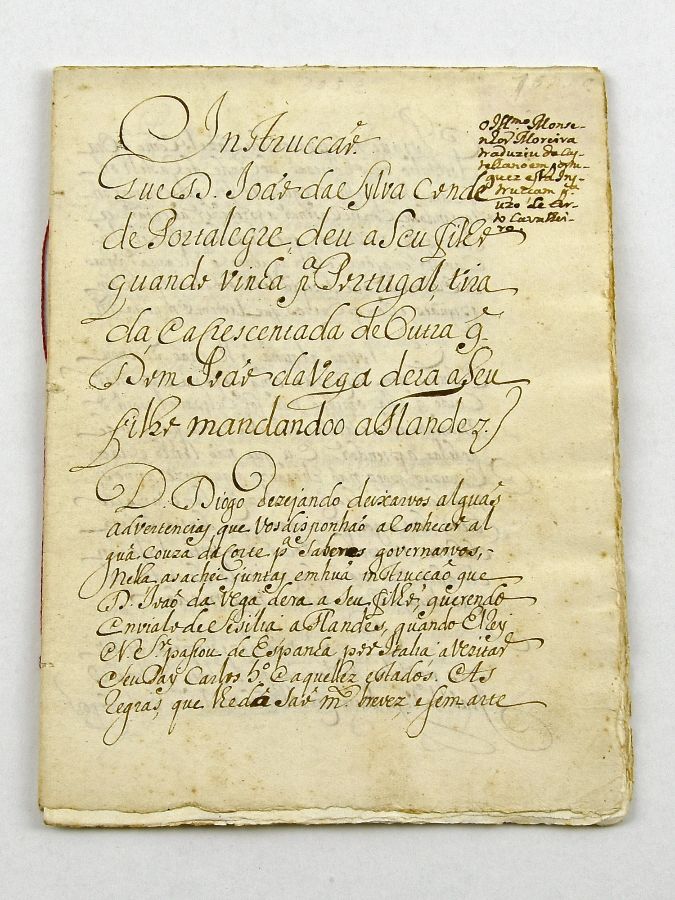 Instrucçaõ.
Que D. Joaõ da Sylva Conde
de Portalegre, deu a Seu filho
quando vinha pª Portugal, tira
da, e acrescentada de Outra q̃
Dom Joaõ da Vega dera a Seu
filho mandandoo a Flandez.
O Illmo Monse-
nhor Moreira
traduziu de Cas-
telhano em Portu-
guez esta Ins-
truciam pª
uzo de
Cavalhei-
ro.
D. Diogo dezejando deixarvos alguãs
advertencias que vos disponhaõ a Conhecer al
guã Couza da Corte pª Saberes governarvos,
Nella, as achei juntas em huã instrucçaõ que
D. Joaõ da Vega dera a Seu filho, querendo
Envialo de Sesilia a Flandes, quando ElRey
N. Sr. pasou de Espanha por Italia a vezitar
Seu Pay Carlos 5º. e aquellez estados. As
Regras, que lhe dá Saõ mto. brevez e sem arte